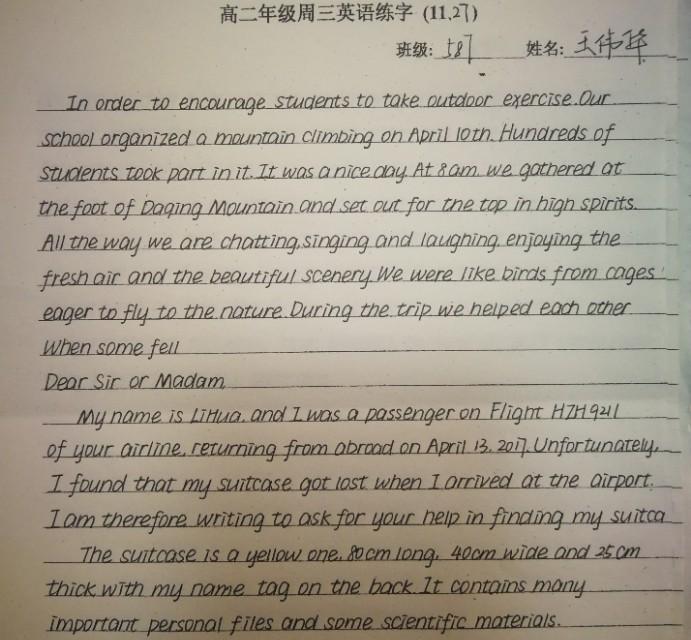 高二年级周三英语练字 (11.27)
班级: 587 姓名: 王伟
In order to encourage students to take outdoor exercise. Our
school organized a mountain climbing on April 10th. Hundreds of
students took part in it. It was a nice day. At 8 am. we gathered at
the foot of Daqing Mountain and set out for the top in high spirits.
All the way we are chatting, singing and laughing, enjoying the
fresh air and the beautiful scenery. We were like birds from cages
eager to fly to the nature. During the trip we helped each other
When some fell
Dear Sir or Madam,
My name is LiHua, and I was a passenger on Flight HZH9241
of your airline, returning from abroad on April 13, 2017. Unfortunately,
I found that my suitcase got lost when I arrived at the airport.
I am therefore writing to ask for your help in finding my suitca
The suitcase is a yellow one, 80cm long, 40cm wide and 25cm
thick with my name tag on the back. It contains many
important personal files and some scientific materials.